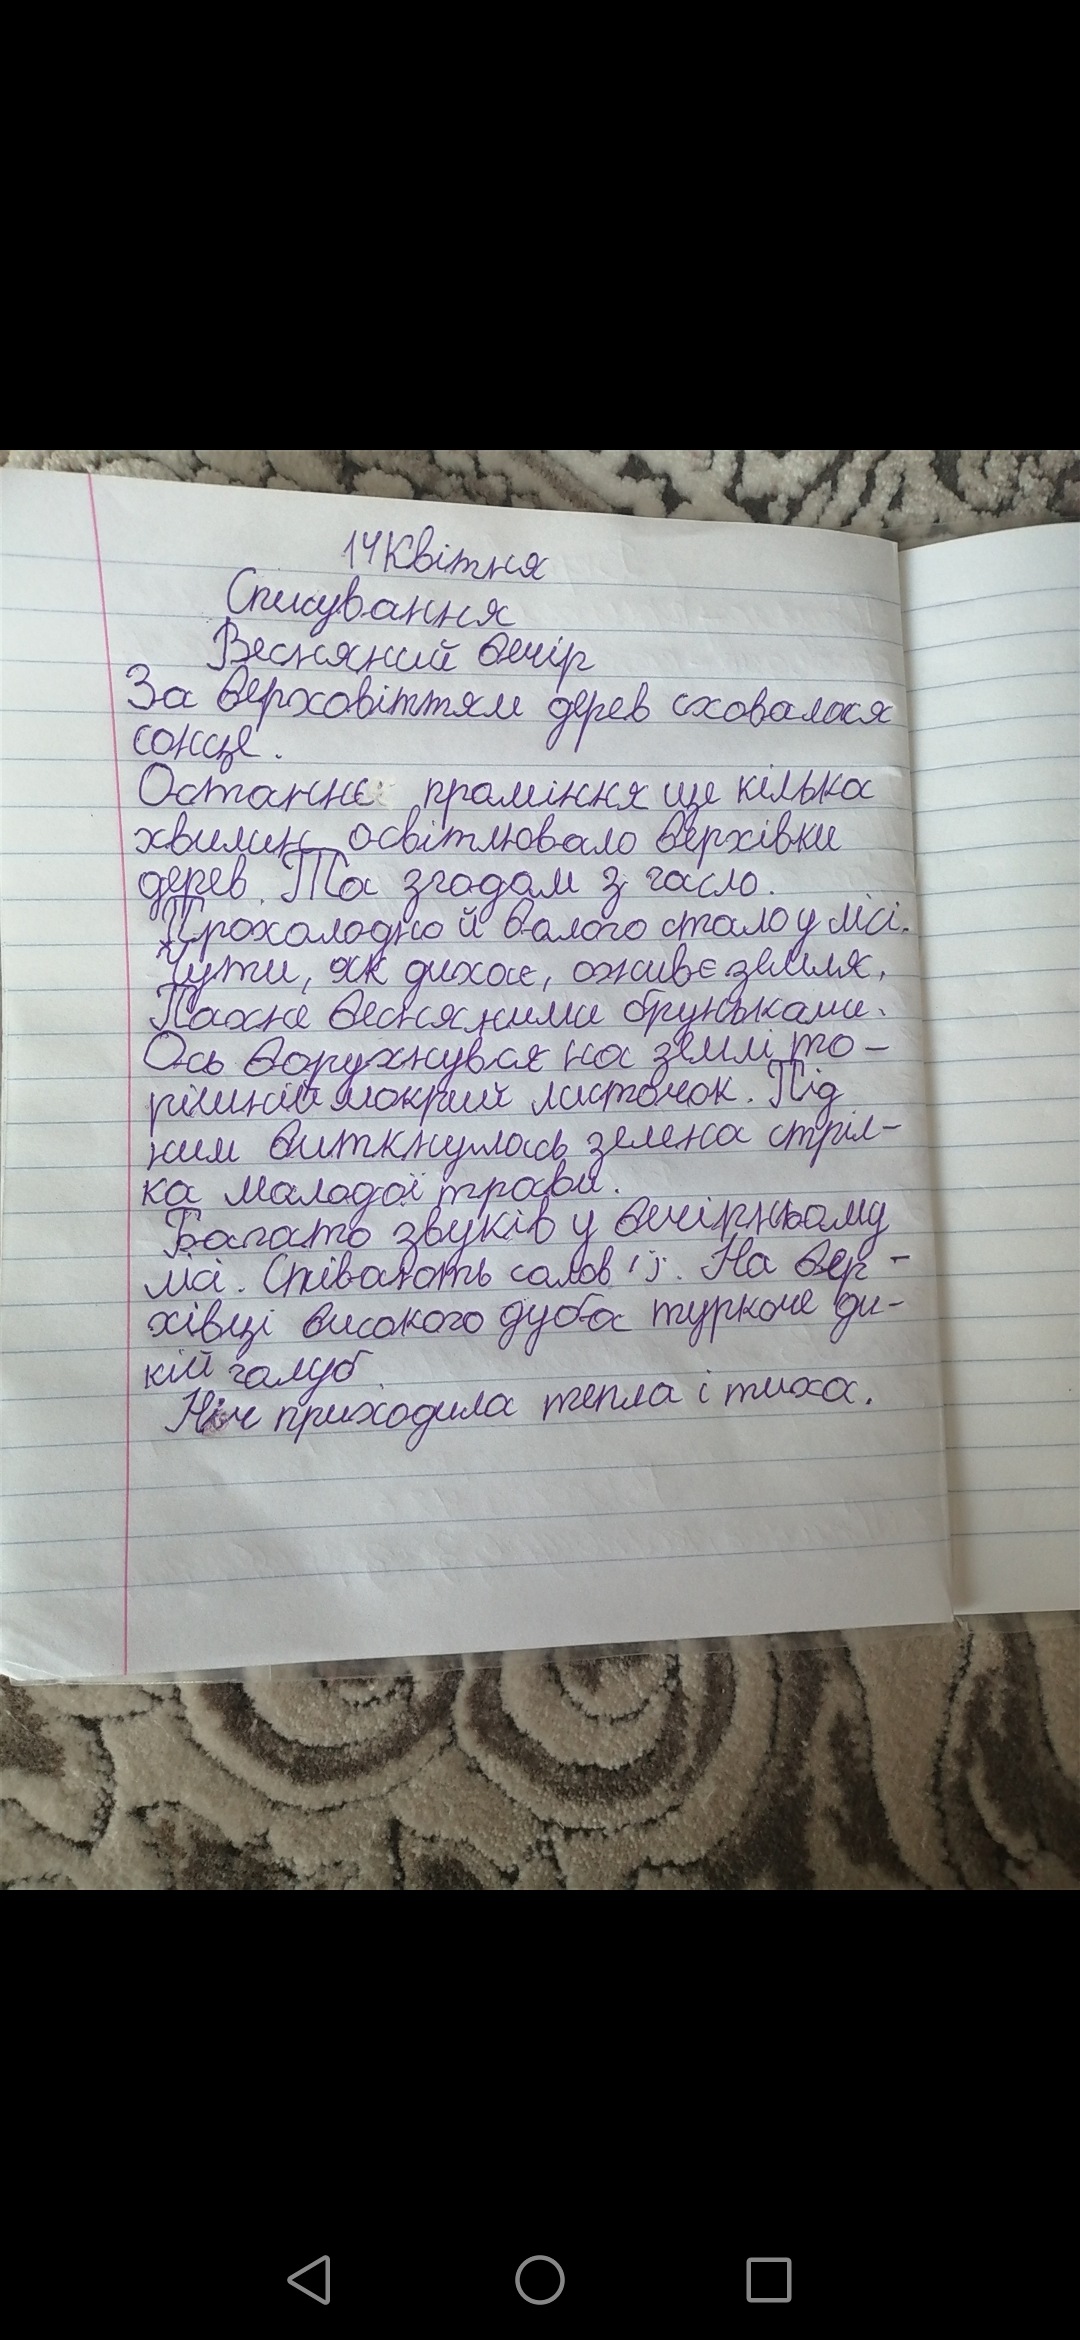 14 Квітня
Списування
Весняний вечір
За верховіттям дерев сховалося
сонце.
Останнє проміння ще кілька
хвилин освітлювало верхівки
дерев. Та згодам з гасло.
Прохолодно й валого стало у лісі.
Чути, як дихає, оживє земля,
Пахне весняними бруньками.
Ось ворухнувся на землі то-
рішній мокрий листочок. Під
ним виткнулась зелена стріл-
ка маладої трави.
Багато звуків у вечірньому
лісі. Співають салов'ї. На вер-
хівці високого дуба туркоче ди-
кій галуб.
Ніч приходила тепла і тиха.